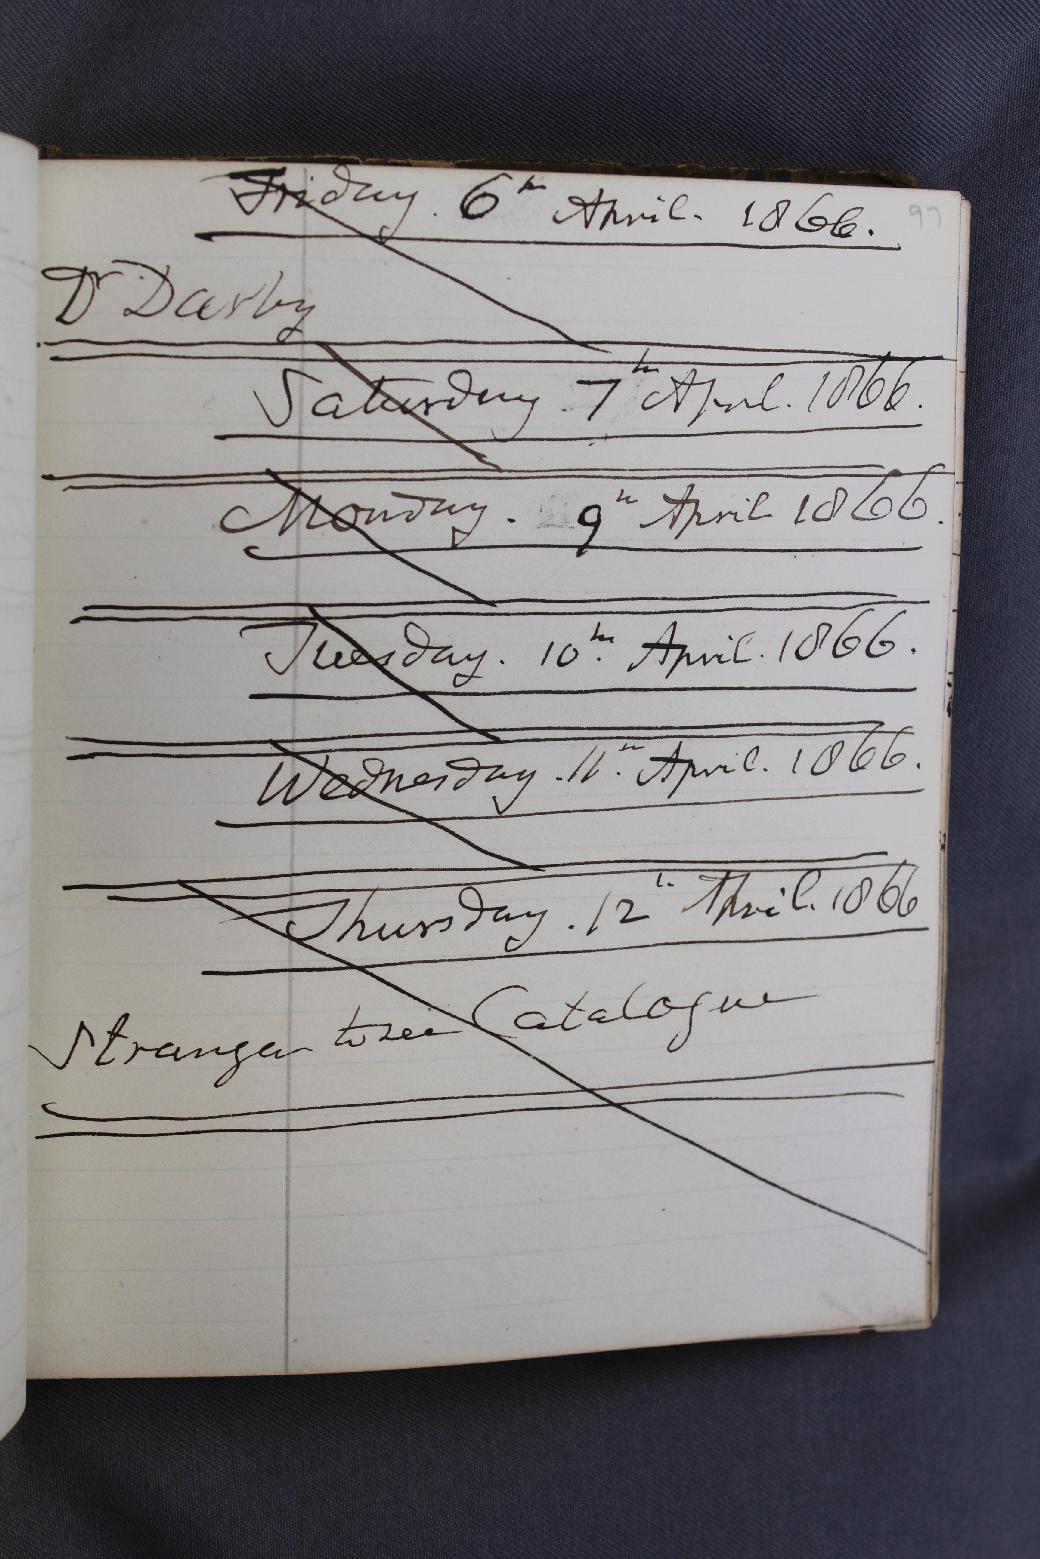 Friday. 6th April. 1866.
97
Dr Darby
Saturday 7th April. 1866.
Monday. 9th April 1866.
Tuesday. 10th. April. 1866.
Wednesday. 11th. April. 1866.
Thursday. 12th April. 1866
Stranger to see Catalogue